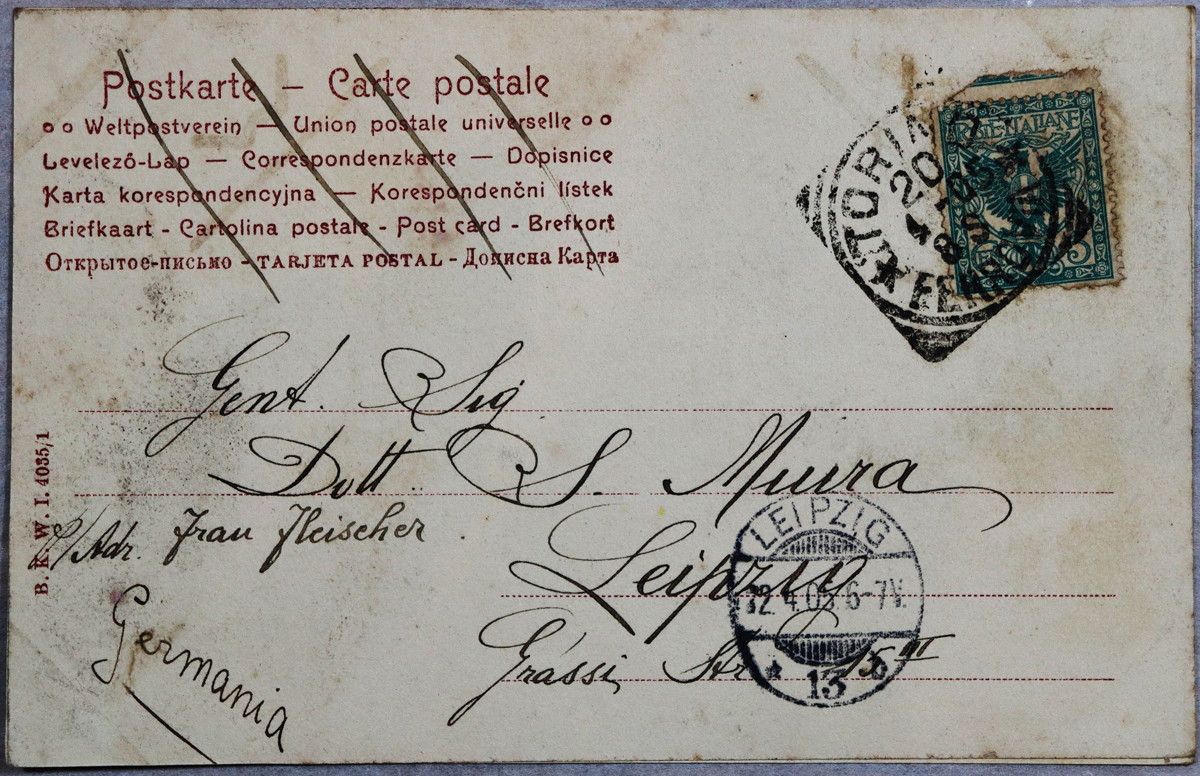 Postkarte – Carte postale
Weltpostverein — Union postale universelle
Levelező-Lap — Correspondenzkarte — Dopisnice
Karta korespondencyjna — Korespondenční lístek
Briefkaart - Cartolina postale - Post card - Brefkort
Открытое-письмо - TARJETA POSTAL - Дописна Карта
POSTE ITALIANE
5
TORIN
20
FERROVIA
Gent. Sig
Dott S. Muira
p/Adr. Frau Fleischer
Leipzig
Grassi Str 15 III
Germania
LEIPZIG
22.4.05.6-7V.
* 13 b
B. K. W. I. 4035/1